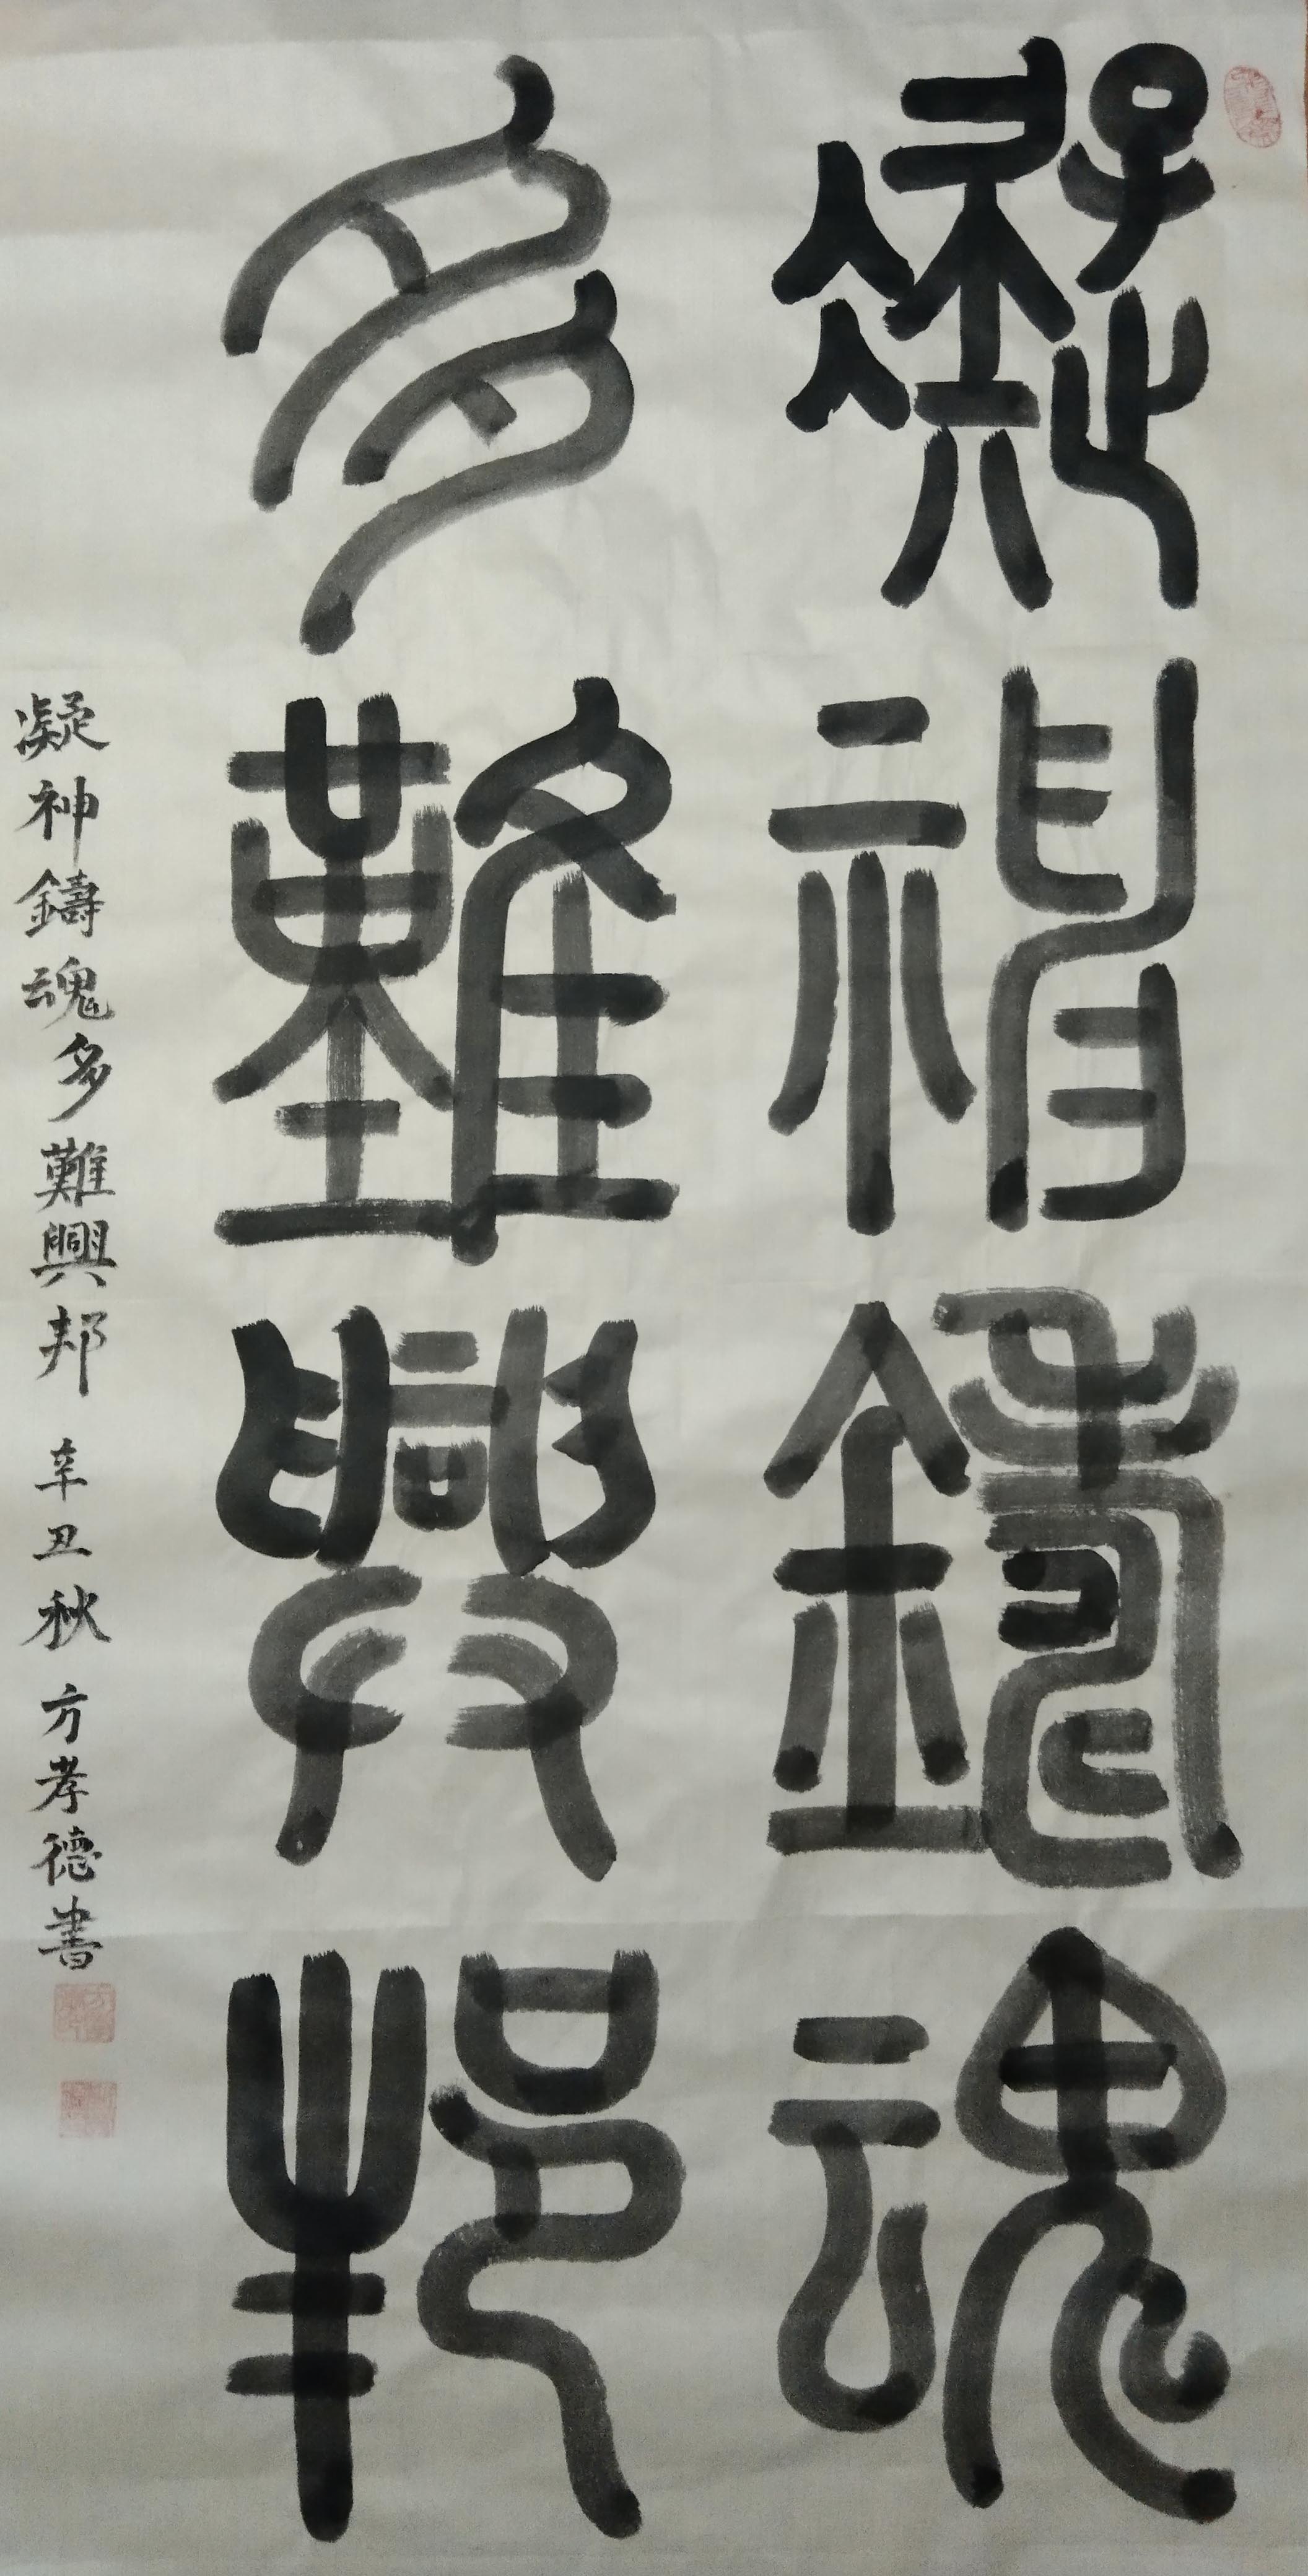 凝神鑄魂
多難興邦
凝神鑄魂多難興邦 辛丑秋 方孝德書